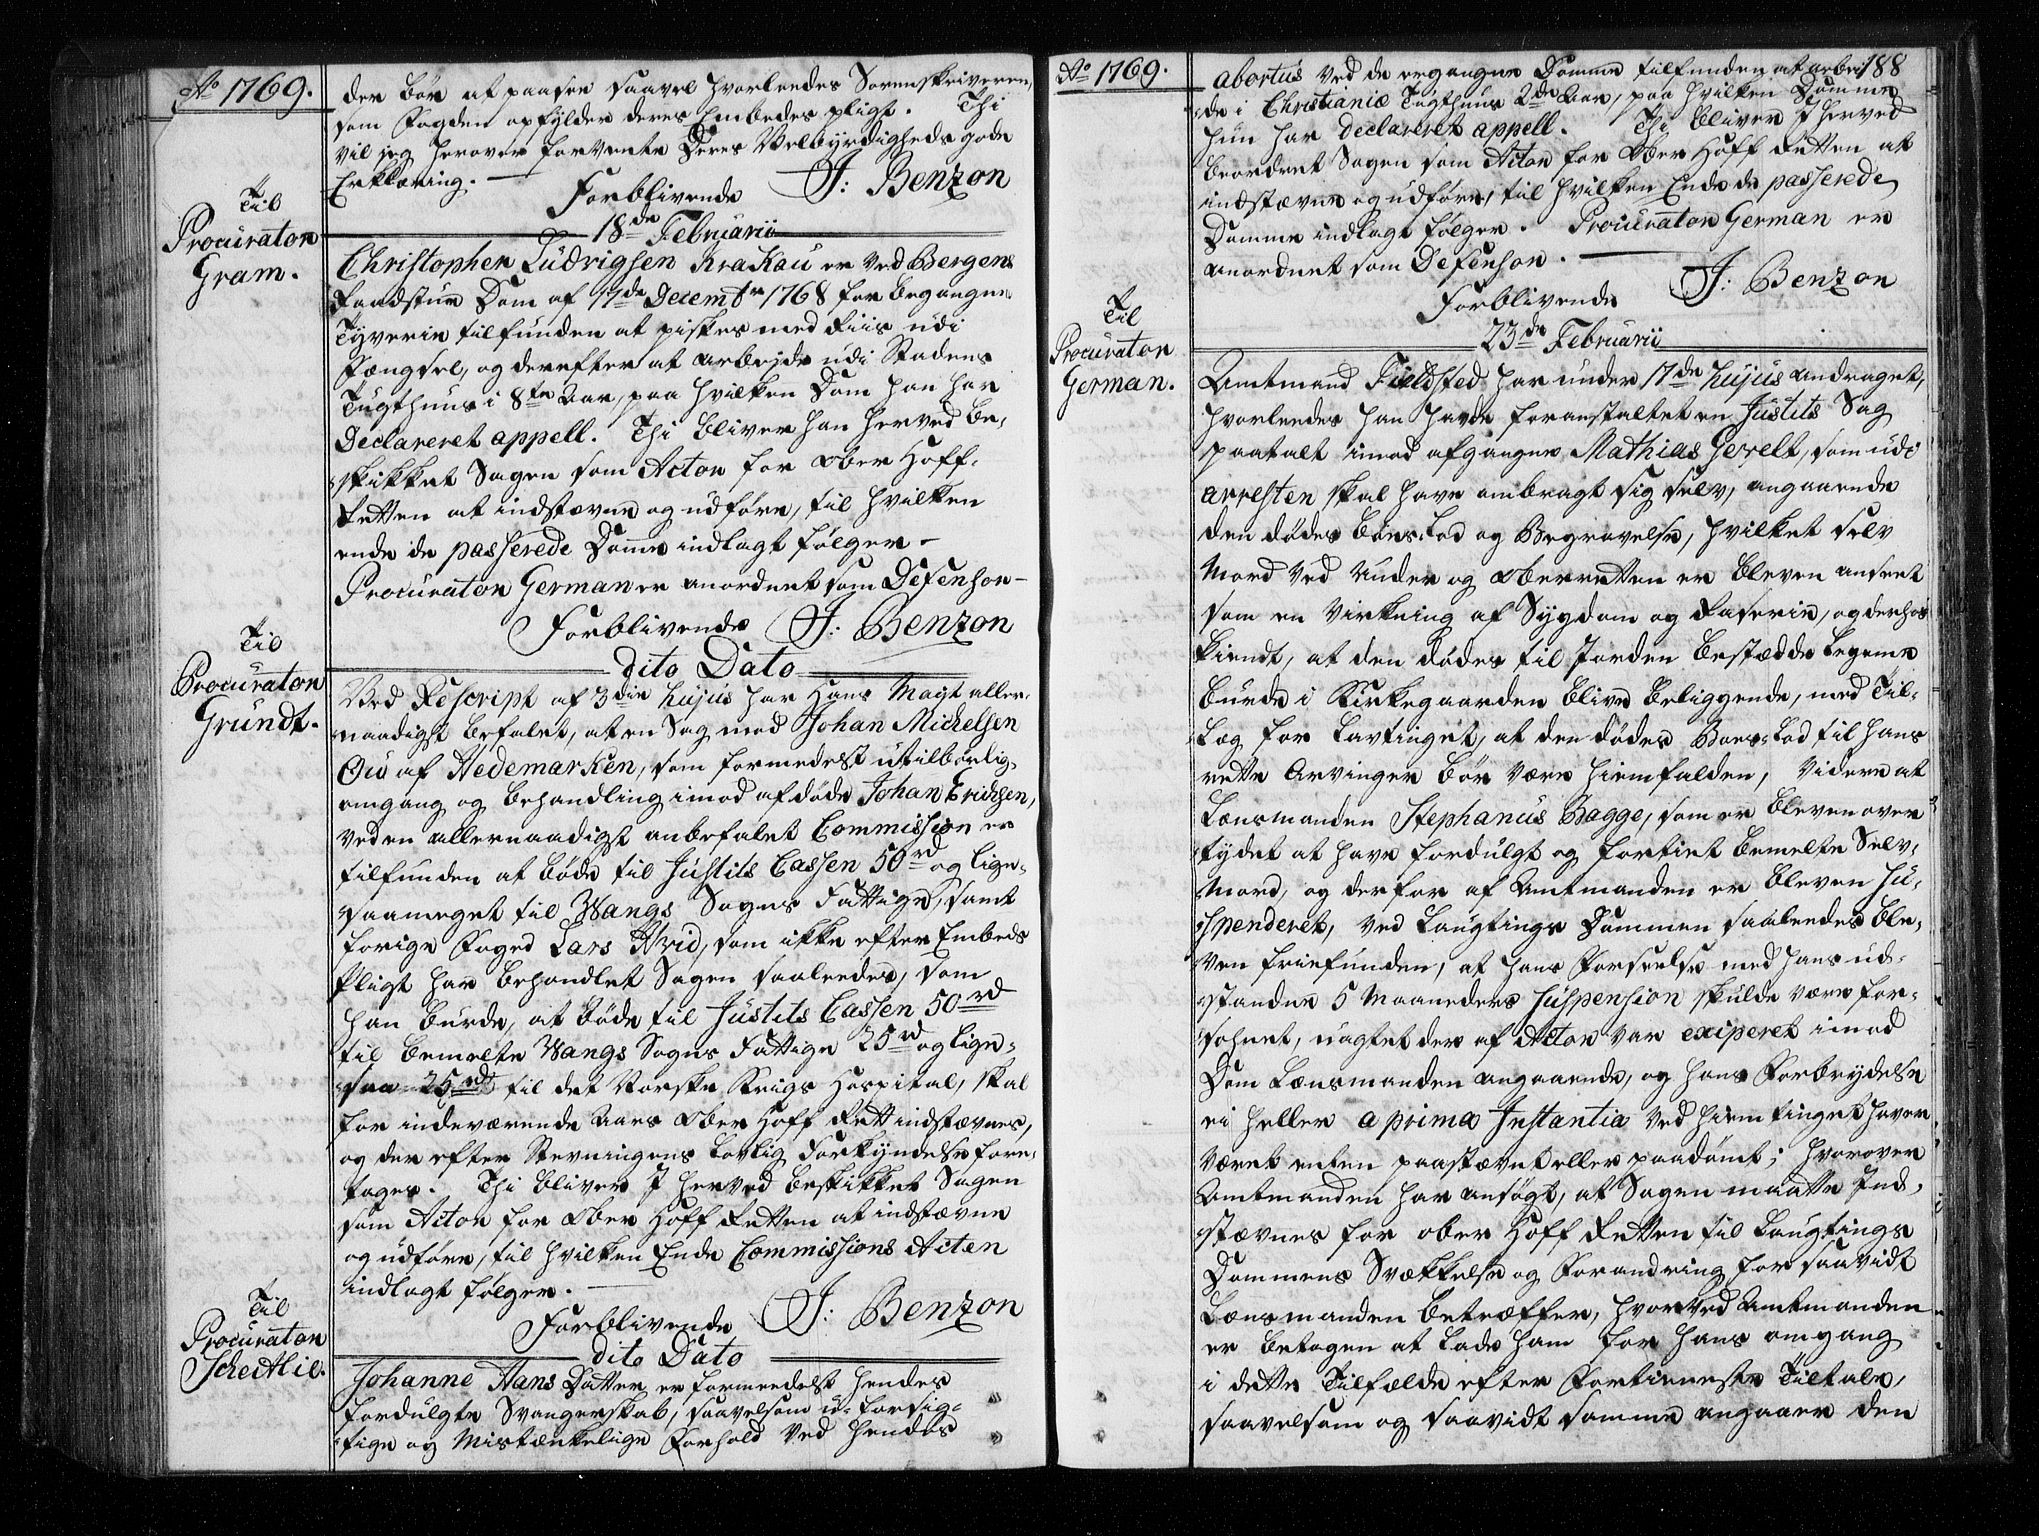 Ao 1769.
der bör at paasee saavel hvorledes Sorenskriveren,
som Fogden opfylder deres Embedes pligt. Thi
vil jeg herover forvente Deres Velbyrdigheds gode
Erklæring. Forblivende J: Benzon
18de Februarii
Til
Procurator
Gram.
Christopher Ludvigsen Krakau er ved Bergens
Raadstue Dom af 17de Decembr 1768 for begangne
Tyverie tilfunden at piskes med Riis udi
Fængsel, og derefter at arbejde udi Stadens
Tugthuus i 8te Aar, paa hvilken Dom han har
Declareret appell. Thi bliver han herved be-
skikket Sagen som Actor for Ober Hoff-
Retten at indstævne og udføre, til hvilken
ende de passerede Domme indlagt følger -
Procurator German er anordnet som Defensor -
Forblivende J: Benzon
dito Dato
Til
Procurator
Grundt.
Ved Rescript af 3die hujus har Hans Mayt aller-
naadigst befalet, at en Sag mod Johan Michelsen
af Hedemarken, som formedelst utilbörlig
omgang og behandling imod afdöde Johan Erichsen,
ved en allernaadigst anbefalet Commission er
tilfunden at böde til Justits Cassen 50rd og lige-
saameget til Wangs Sogns Fattige, samt
forige Foged Lars Hvid, som ikke efter Embeds
Pligt har behandlet Sagen saaledes, som
han burde, at böde til Justits Cassen 50rd
til bemelte Wangs Sogns Fattige 25rd og lige-
saa 25rd til det Norske Krigs Hospital, skal
for indeværende Aars Ober Hoff Rett indstævnes,
og der efter Stevningens lovlig Forkyndelse fore-
tages. Thi bliver I herved beskikket Sagen
som Actor for Ober Hoff Retten at indstævne
og udføre, til hvilken Ende Commissions Acten
indlagt følger.
Forblivende J: Benzon
dito Dato
Til
Procurator
Scheitlie.
Johanne Hans Datter er formedelst hendes
fordulgte Svangerskab, saavelsom u-forsig-
tige og Mistænkelige Forhold ved hendes
Ao 1769.
188
abortus ved de ergangne Domme tilfunden at arbei-
de i Christianiæ Tugthuus 2de Aar, paa hvilken Domme
hun har declareret appell. Thi bliver I herved
beordret Sagen som Actor for Ober Hoff Retten at
indstævne og udføre, til hvilken Ende de passerede
Domme indlagt følger. Procurator German er
anordnet som Defensor.
Forblivende J: Benzon
23de Februarii
Til
Procurator
German.
Amtmand Fieldsted har under 17de hujus andraget,
hvorledes han havde foranstaltet en Justits Sag
paatalt imod afgangne Mathias Gerrelt, som udi
arresten skal have ombragt sig selv, angaaende
den dödes Boes-Lod og Begravelse, hvilket selv
Mord ved Under og Oberretten er bleven anseet
som en Virkning af Sygdom og Raserie, og derhos
kiendt, at den dödes til Jorden bestædde Legeme
burde i Kirkegaarden blive beliggende, med Til-
læg for Lavtinget, at den dödes Boes-Lod til hans
rette Arvinger bör være hiemfalden, videre at
Lænsmanden Stephanus Bagge, som er bleven over
tydet at have fordulgt og fortiet bemelte Selv-
Mord, og derfor af Amtmanden er bleven su-
spenderet, ved Laugtings Dommen saaledes ble-
ven friefunden, at hans Forseelse med hans ud-
standne 5 Maaneders Suspension skulde være for-
sohnet, uagtet der af Actor var exiperet imod
Dom Lænsmanden angaaende, og hans Forbrydelse
ei heller a prima Instantia ved hiemtinget haver
været enten paastævnt eller paadömt; hvorover
Amtmanden har ansögt, at Sagen maatte Ind-
stævnes for ober Hoff Retten til Laugtings
Dommens Svækkelse og Forandring for saavidt
Lænsmanden betræffer, hvorved Amtmanden
er betagen at lade ham for hans omgang
i dette Tilfælde efter Fortieneste Tiltale,
saavelsom og saavidt samme angaaer den